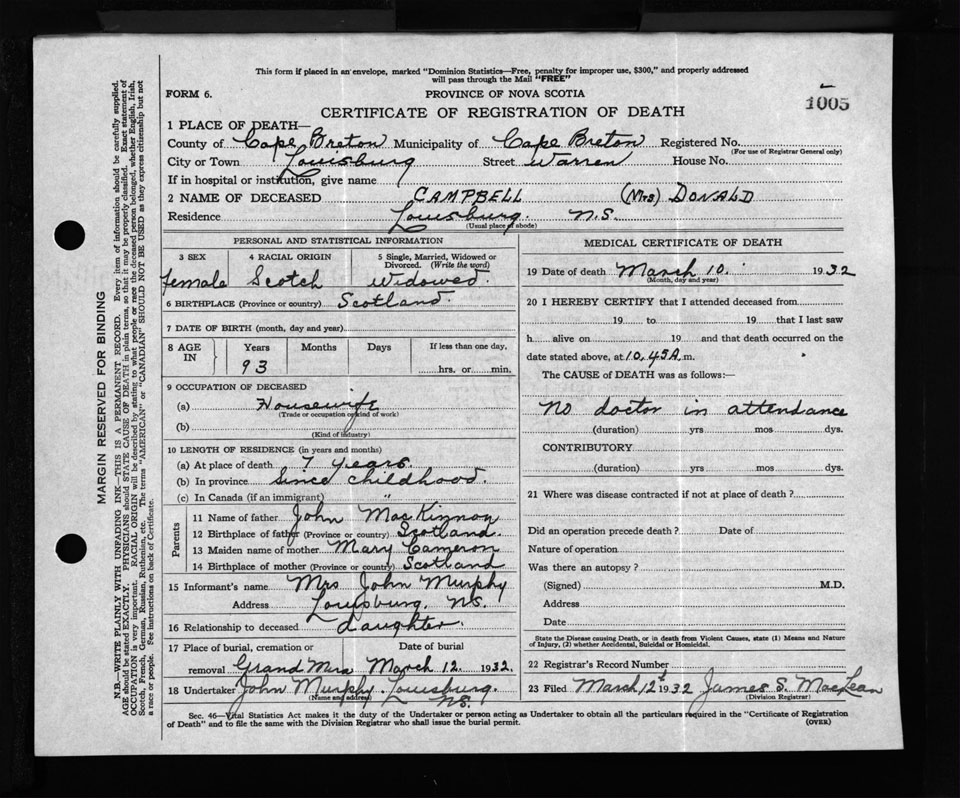 This form if placed in an envelope, marked "Dominion Statistics—Free, penalty for improper use, $300," and properly addressed
will pass through the Mail "FREE"
FORM 6.
PROVINCE OF NOVA SCOTIA
1005
CERTIFICATE OF REGISTRATION OF DEATH
1 PLACE OF DEATH—
County of Cape Breton Municipality of Cape Breton Registered No.
(For use of Registrar General only)
City or Town Louisburg Street Warren House No.
If in hospital or institution, give name
2 NAME OF DECEASED CAMPBELL (Mrs) DONALD
Residence Louisburg. N.S.
(Usual place of abode)
PERSONAL AND STATISTICAL INFORMATION
3 SEX 4 RACIAL ORIGIN 5 Single, Married, Widowed or
Divorced. (Write the word)
female Scotch Widowed.
6 BIRTHPLACE (Province or country) Scotland.
7 DATE OF BIRTH (month, day and year)
8 AGE IN Years Months Days If less than one day,
93 hrs. or min.
9 OCCUPATION OF DECEASED
(a) Housewife
(Trade or occupation or kind of work)
(b)
(Kind of industry)
10 LENGTH OF RESIDENCE (in years and months)
(a) At place of death 7 years.
(b) In province Since childhood.
(c) In Canada (if an immigrant) "
Parents
11 Name of father John MacKinnon
12 Birthplace of father (Province or country) Scotland.
13 Maiden name of mother Mary Cameron
14 Birthplace of mother (Province or country) Scotland
15 Informant's name Mrs John Murphy
Address Louisburg. N.S.
16 Relationship to deceased daughter.
17 Place of burial, cremation or Date of burial
removal Grand Mira March 12. 1932.
18 Undertaker John Murphy. Louisburg.
(Name and address) N.S.
MEDICAL CERTIFICATE OF DEATH
19 Date of death March 10. 1932
(Month, day and year)
20 I HEREBY CERTIFY that I attended deceased from
19 to 19 that I last saw
h alive on 19 and that death occurred on the
date stated above, at 10.45 A. m.
The CAUSE of DEATH was as follows:—
No doctor in attendance
(duration) yrs mos dys.
CONTRIBUTORY
(duration) yrs mos dys.
21 Where was disease contracted if not at place of death?
Did an operation precede death? Date of
Nature of operation
Was there an autopsy?
(Signed) M.D.
Address
Date
State the Disease causing Death, or in death from Violent Causes, state (1) Means and Nature
of Injury, (2) whether Accidental, Suicidal or Homicidal.
22 Registrar's Record Number
23 Filed March 12th 1932 James S. MacLean
(Division Registrar)
Sec. 46—Vital Statistics Act makes it the duty of the Undertaker or person acting as Undertaker to obtain all the particulars required in the "Certificate of Registration
of Death" and to file the same with the Division Registrar who shall issue the burial permit.
(OVER)
MARGIN RESERVED FOR BINDING
N.B.—WRITE PLAINLY WITH UNFADING INK—THIS IS A PERMANENT RECORD. Every item of information should be carefully supplied.
AGE should be stated EXACTLY. PHYSICIANS should STATE CAUSE OF DEATH in plain terms, so that it may be properly classified. Exact statement of
OCCUPATION is very important. RACIAL ORIGIN will be described by stating to what people or race the deceased person belonged, whether English, Irish,
Scotch, French, German, Russian, Ruthenian, etc. The terms "AMERICAN" or "CANADIAN" SHOULD NOT BE USED as they express citizenship but not
a race or people. See instructions on back of Certificate.